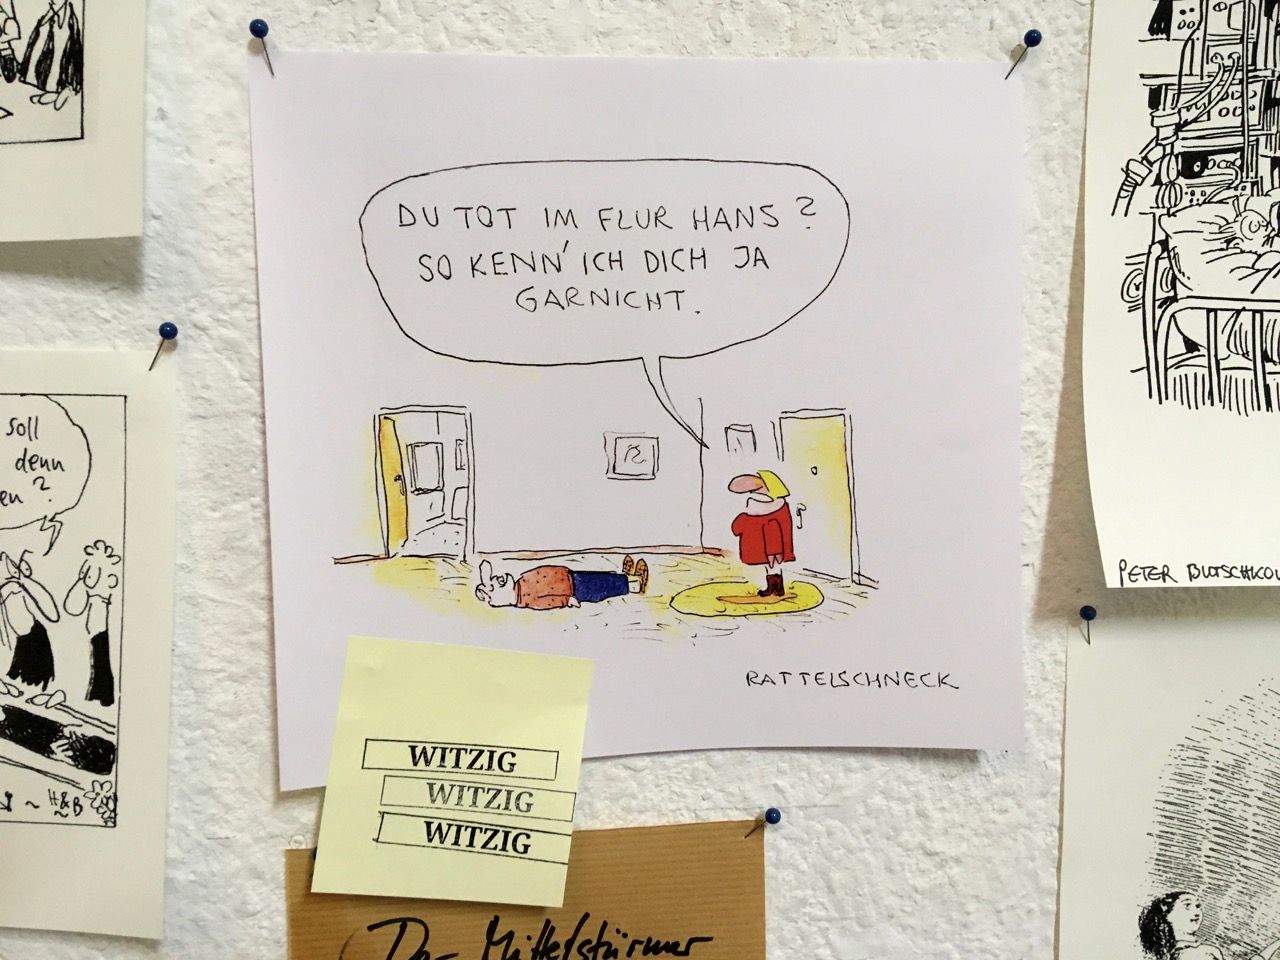 DU TOT IM FLUR HANS?
SO KENN' ICH DICH JA
GARNICHT.
RATTELSCHNECK
WITZIG
WITZIG
WITZIG
soll
denn
en?
H&B
PETER BUTSCHKOW
Mittelstürmer